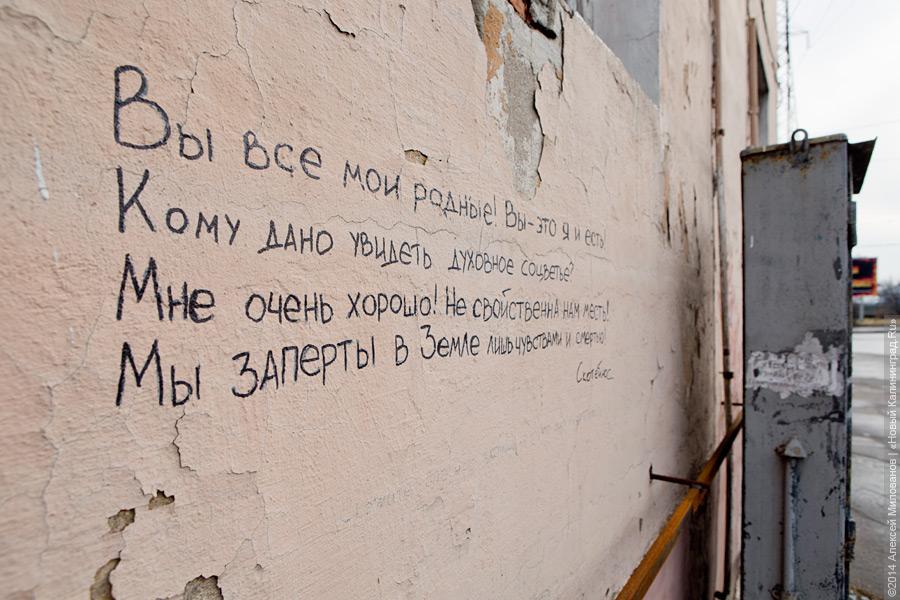 Вы все мои родные! Вы-это я и есть!
Кому дано увидеть духовное соцветье?
Мне очень хорошо! Не свойственна нам месть!
Мы заперты в Земле лишь чувствами и смертью!
©2014 Алексей Милованов | «Новый Калининград.Ru»